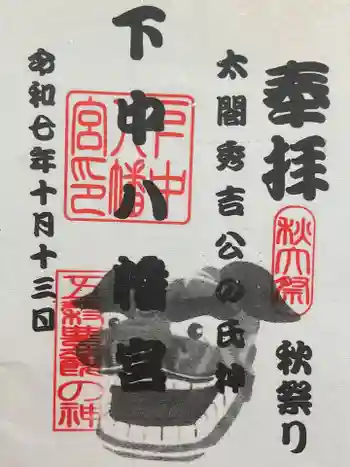 奉拝
秋大祭
秋祭り
太閤秀吉公の氏神
下中八幡宮
下中八幡宮印
五穀豊饒の神
令和七年十月十三日